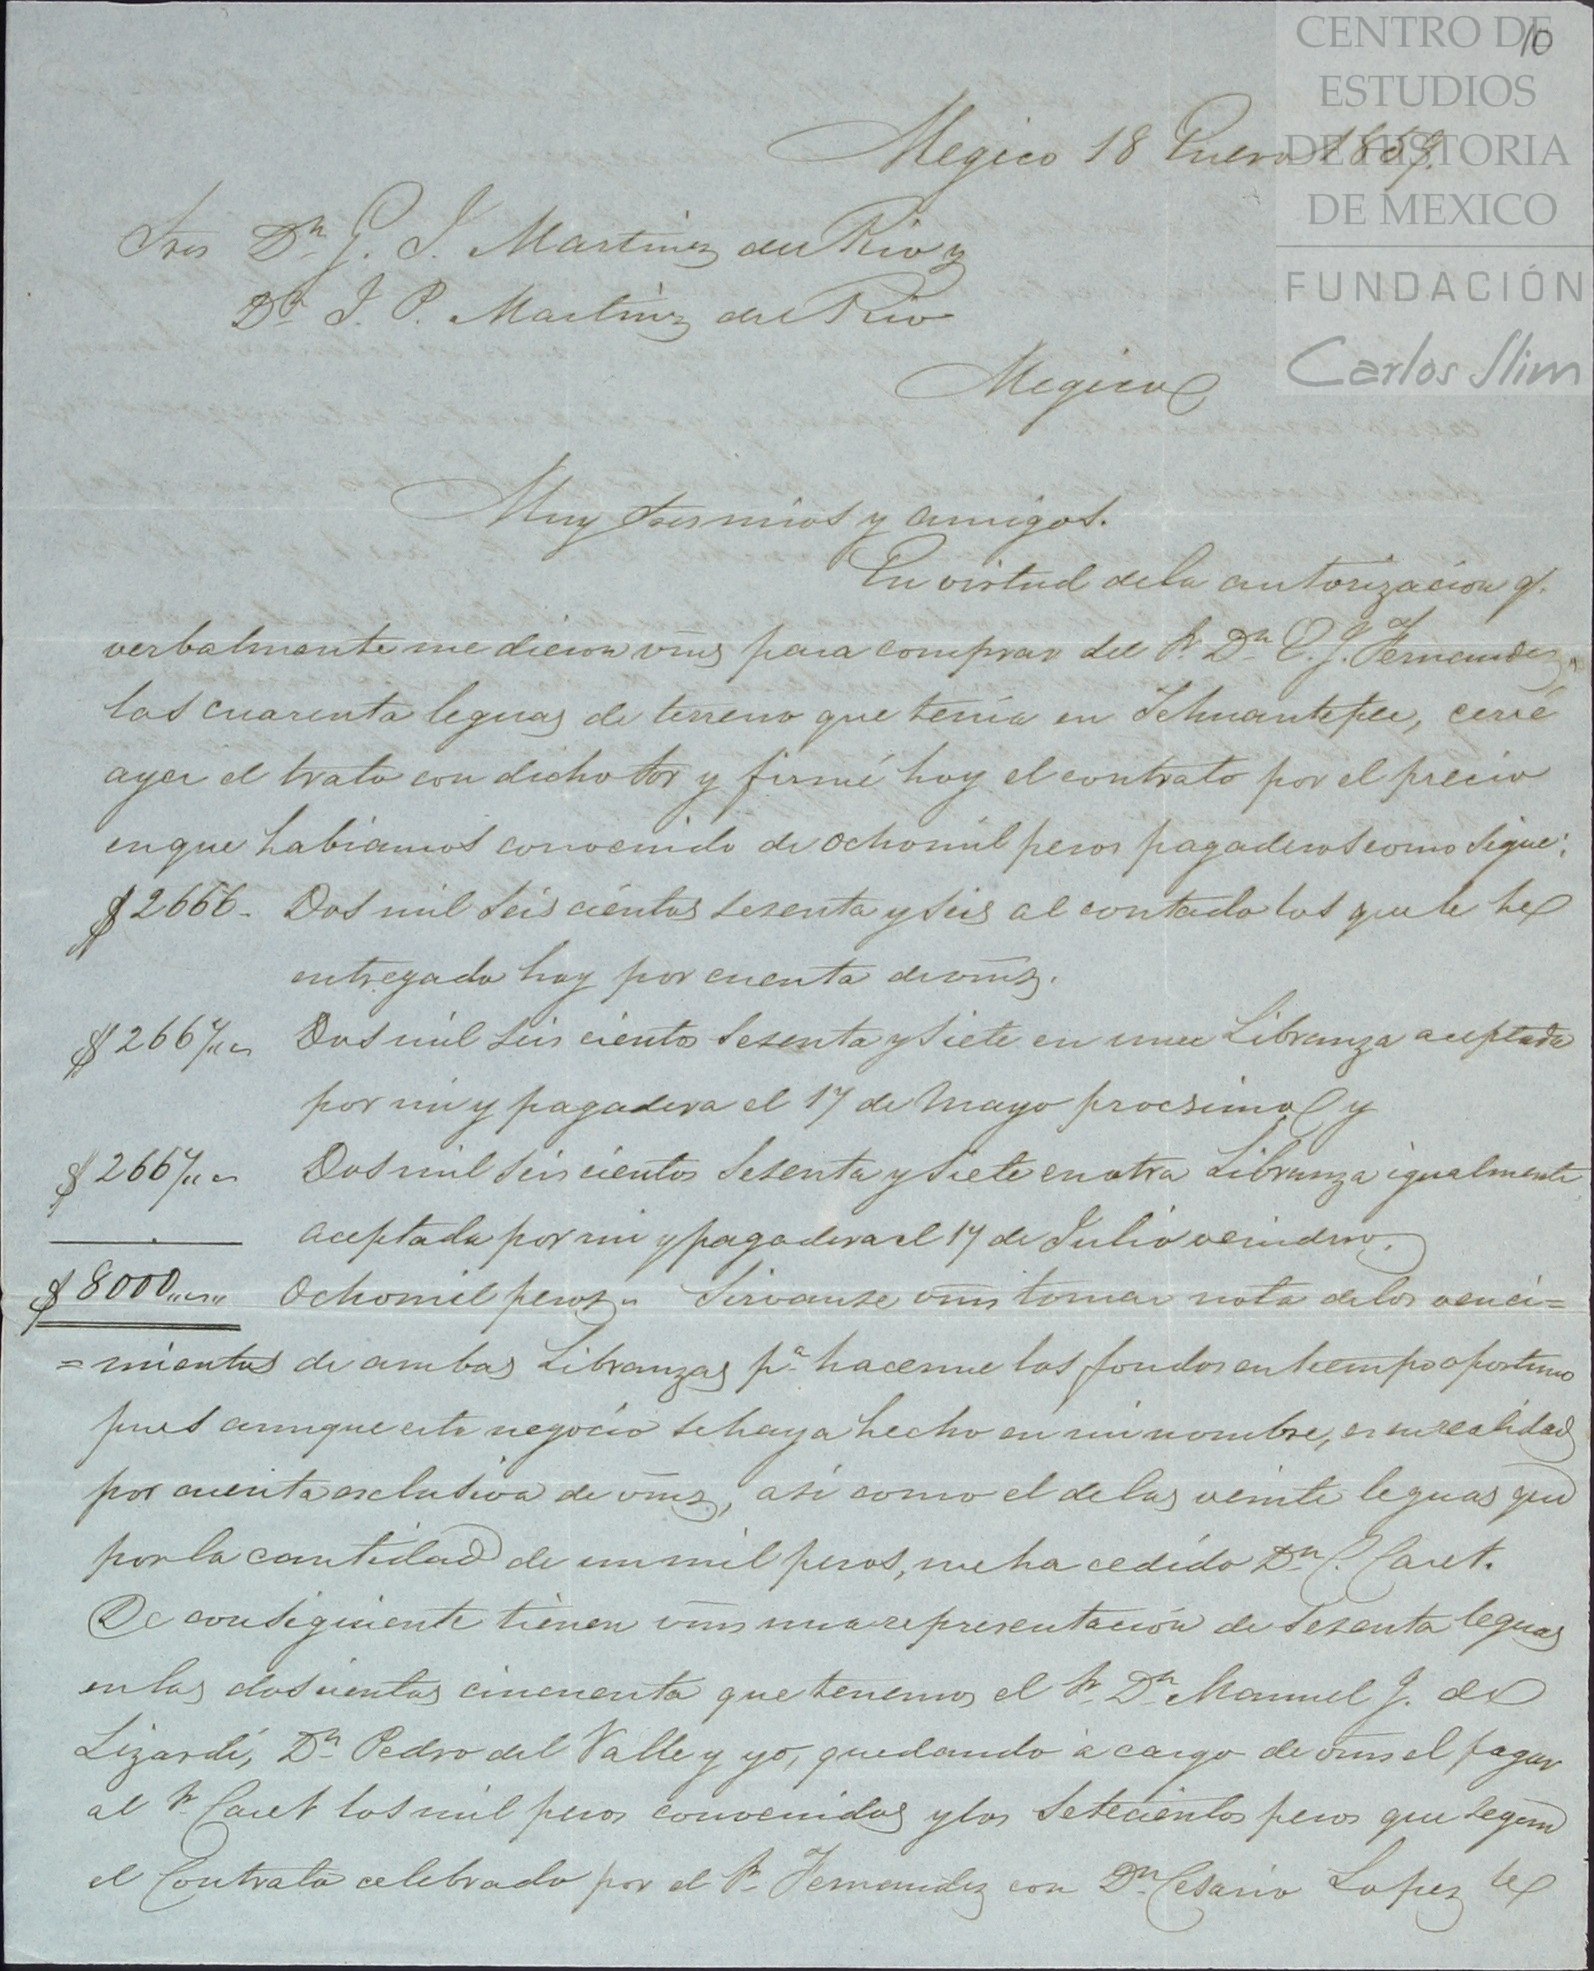 CENTRO DE
ESTUDIOS
DE HISTORIA
DE MEXICO
FUNDACIÓN
Carlos Slim
10
Megico 18 Enero 1859.
Sres Dn. G. I. Martinez del Rio y
Dn. J. P. Martinez del Rio
Megico
Muy Sres mios y amigos.
En virtud de la autorizacion q.
verbalmente me dieron vms para comprar del Sr. Dn. E. J. Fernandez,
las cuarenta leguas de terreno que tenía en Tehuantepec, cerré
ayer el trato con dicho Sor y firmé hoy el contrato por el precio
en que habiamos convenido de ocho mil pesos pagaderos como sigue:
$ 2666- Dos mil seis cientos sesenta y seis al contado los que le he
entregado hoy por cuenta de vms.
$ 2667 Dos mil seis cientos sesenta y siete en una Libranza aceptada
por mi y pagadera el 17 de Mayo procsimo y
$ 2667 Dos mil seis cientos sesenta y siete en otra Libranza igualmente
aceptada por mi y pagadera el 17 de Julio venidero.
$ 8000 Ocho mil pesos. Sirvanse vms tomar nota de los venci=
=mientos de ambas Libranzas pa. hacerme los fondos en tiempo oportuno
pues aunque este negocio se haya hecho en mi nombre, es en realidad
por cuenta esclusiva de vms, asi como el de las veinte leguas que
por la cantidad de un mil pesos, me ha cedido Dn. C. Caret.
De consiguiente tienen vms una representación de sesenta leguas
en las doscientas cincuenta que tenemos el Sr. Dn. Manuel J. de
Lizardi, Dn. Pedro del Valle y yo, quedando á cargo de vms el pagar
al Sr. Caret los mil pesos convenidos y los setecientos pesos que segun
el Contrato celebrado por el Sr. Fernandez con Dn. Cesario Lopez le